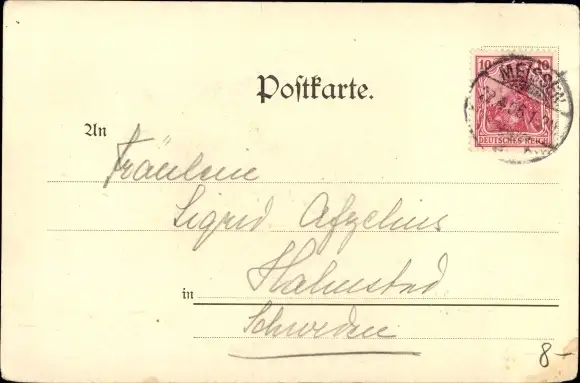 10 10
MEISSEN
DEUTSCHES REICH
Poſtkarte.
An
Fräulein
Sigrid Afzelius
in Halmstad
Schweden
8-